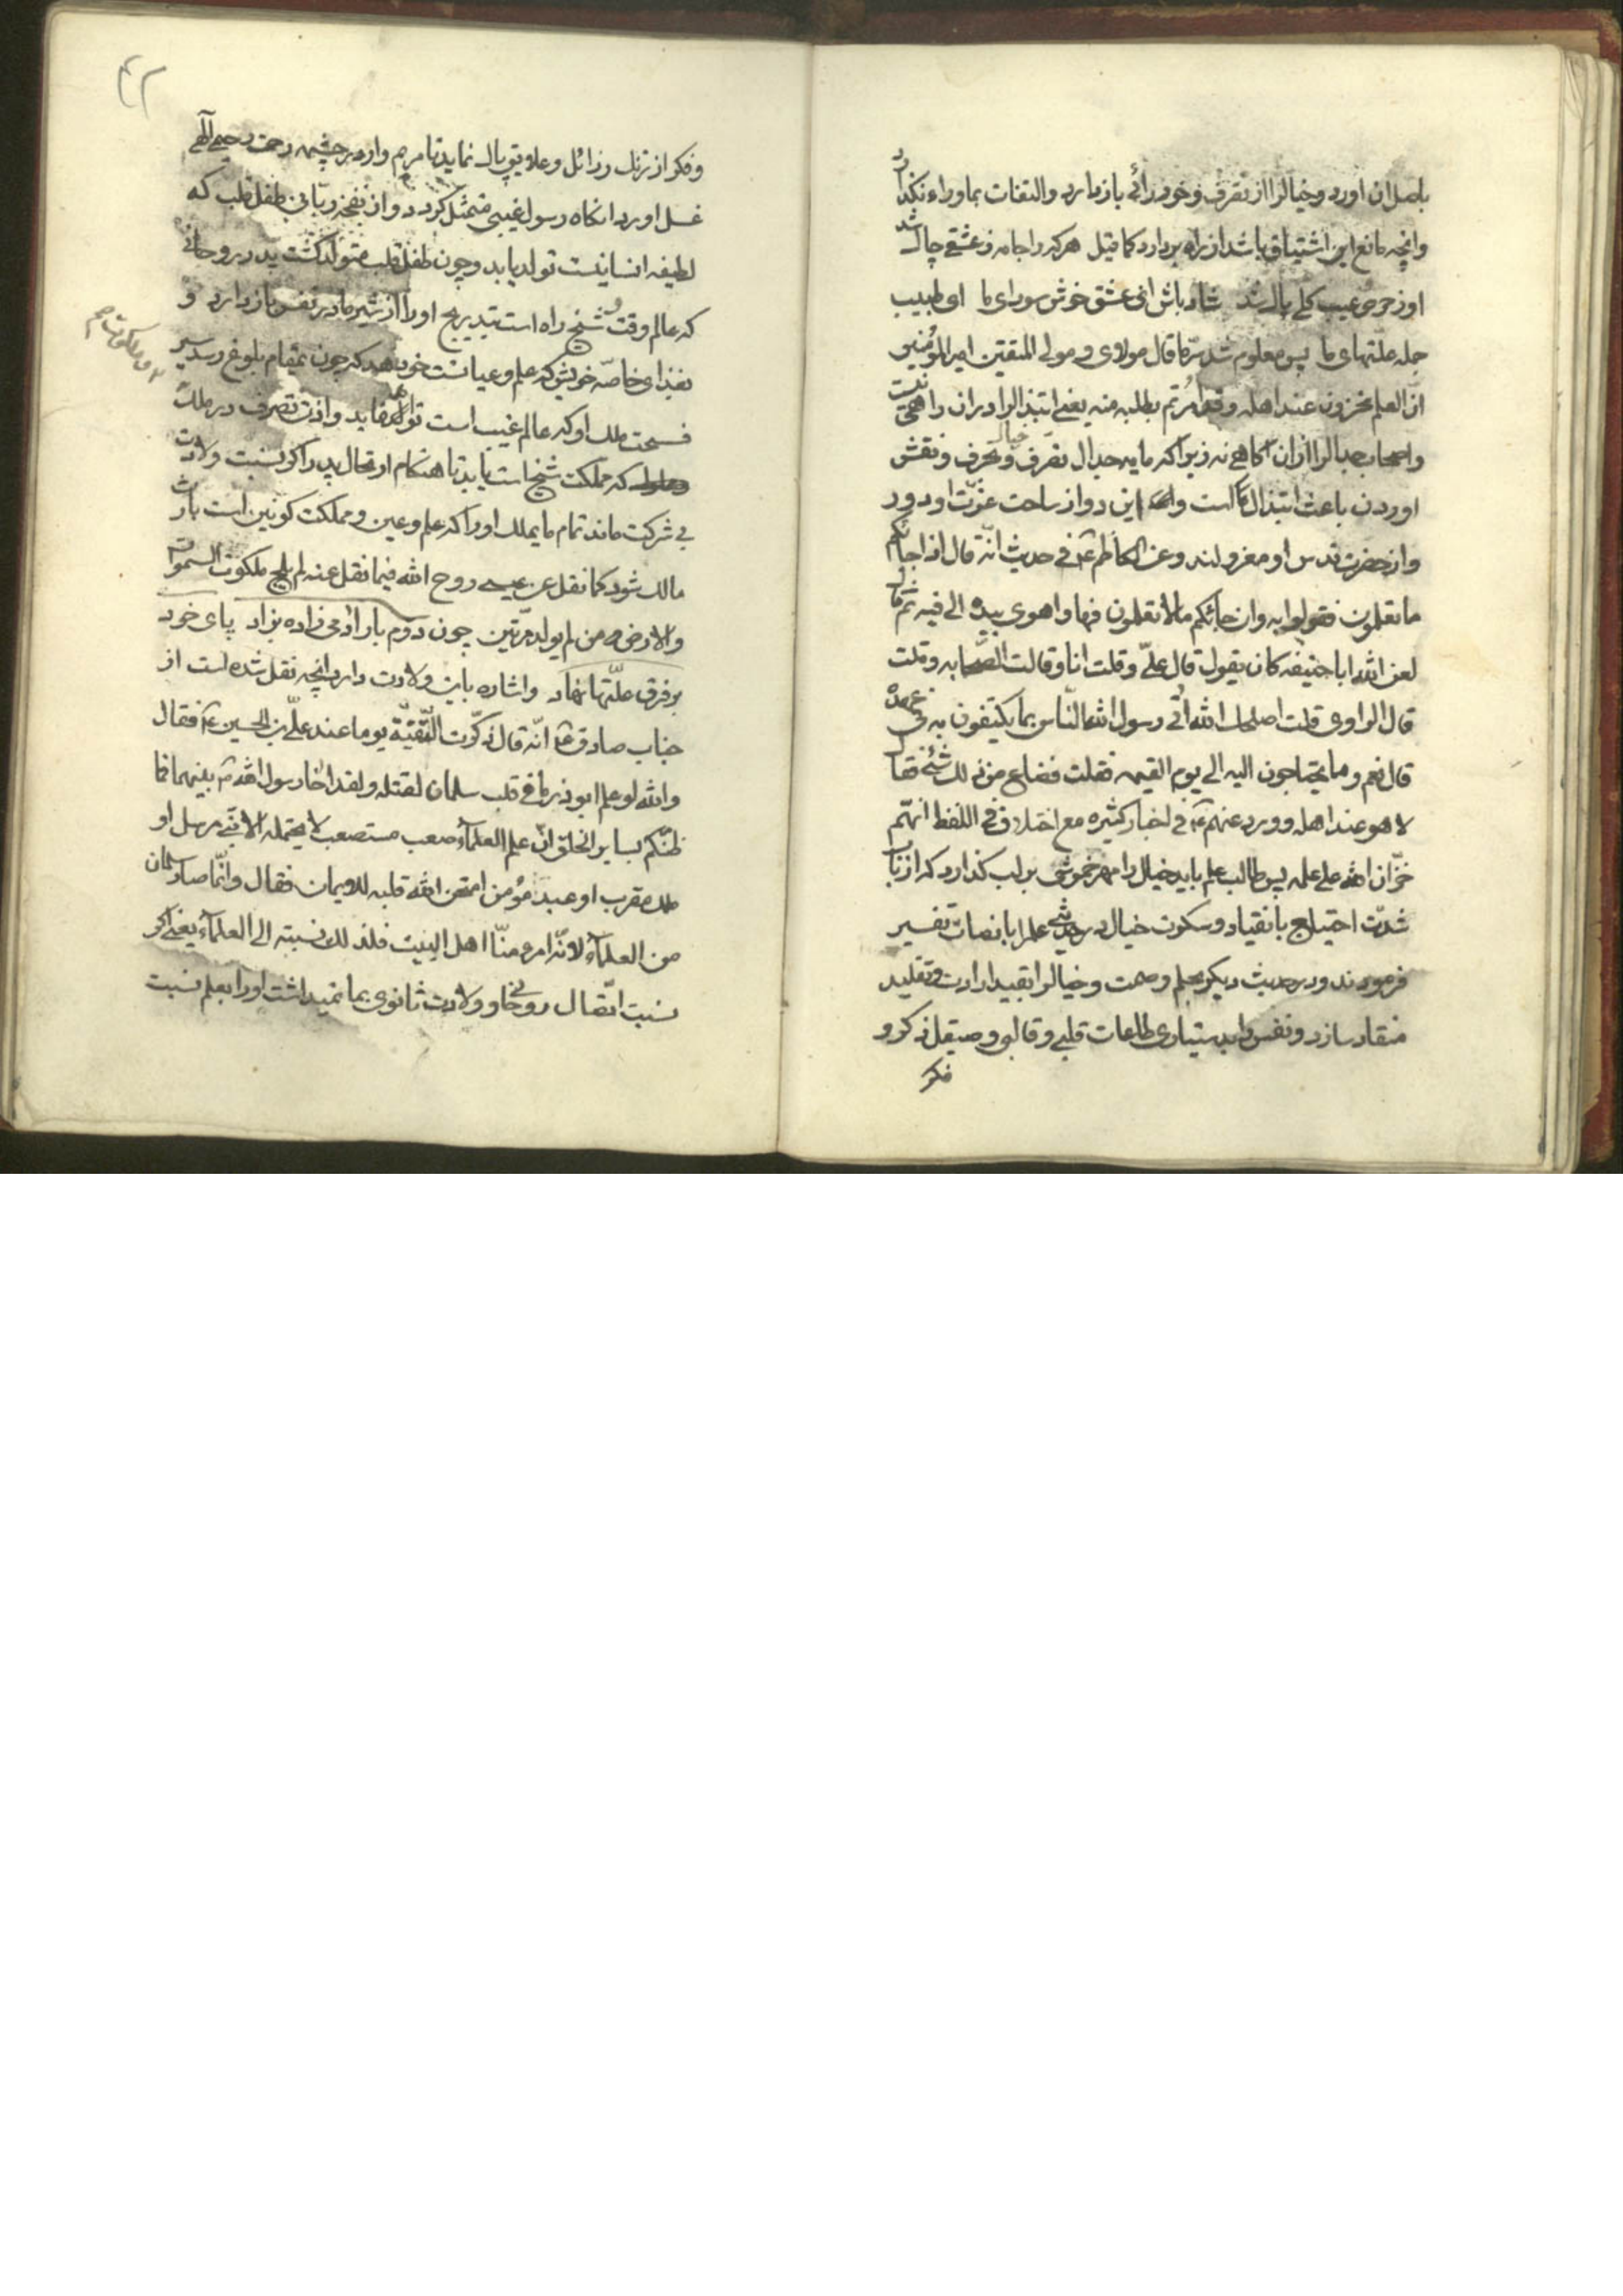 باصل ان اورد و خیالرا از تصرف و خود رائی باز دارد و التفات بماوراء نکذارد
وانچه مانع این اشتیاق باشد از راه بردارد کما قیل هر که را جامه ز عشقی چاک شد
او ز حرص و عیب کلی پاک شد شاد باش ای عشق خوش سودای ما ای طبیب
جمله علتهای ما پس معلوم شد سرّ ما قال مولای و مولی المتقین امیر المؤمنین
انّ العلم مخزون عند اهله وقد امرتم بطلبه منه یعنی ابتذالرا در ان راهی نیست
و اصحاب جدالرا ازان اکاهی نه زیرا که مایه جدال تصرف خیال و تحرف و نقش
اوردن باعث ابتذال است و این دو از ساحت عزّت او دور
و از حضرت قدس او معزولند و عن الکاظم ع فی حدیث انّه قال اذا جائکم
ما تعلمون فقولوا به وان جائکم مالا تعلمون فها واهوی بیده الی فیه ثم قال
لعن الله ابا حنیفه کان یقول قال علیّ و قلت انا و قالت الصحابه و قلت
قال الراوی قلت اصلحک الله اتی رسول الله النّاس بما یکتفون به فی عهده
قال نعم و ما یحتاجون الیه الی یوم القیمه فقلت فضاع من ذلک شئ فقال
لا هو عند اهله و ورد عنهم ع فی اخبار کثیره مع اختلاف فی اللفظ انهم
خزّان الله علی علمه پس طالب علم باید خیال را مهر خموشی بر لب کذارد که از باب
شدّت احتیاج بانقیاد و سکوت خیال در حدیثی علم را بانصات تفسیر
فرمودند و در حدیث دیکر بحلم و صمت و خیالرا بقید ارادت و تقلید
منقاد سازد و نفس را بدستیاری طاعات قلبی و قالبی و صیقل ذکر و
فکر
۴۲
و فکر از زنک رذائل و علایق پاک نماید تا مریم وار در چشمه رحمت رحیمی الهی
غسل اورد انکاه رسول غیبی متمثل کردد و از نفخه ربّانی طفل قلب که
لطیفه انسانیت تولد یابد و چون طفل قلب متولد کشت پدر روحانی
که عالم وقت و شیخ راه است بتدریج او را از شیر مادر نفس باز دارد و
بغذای خاصّه خویش که علم و عیانست خو دهد که چون بمقام بلوغ رسد سیر
فسحت ملک او که عالم غیب است تواند نماید و اذن تصرف در ملک
که مملکت شیخ است یابد تا هنکام ارتحال پدر را کو نسبت ولادت
بی شرکت ماند تمام ما یملک او را که علم و عین و مملکت کونین است بارث
مالک شود کما نقل عن عیسی روح الله فیما نقل عنه لم یلج ملکوت السموات
والارض من لم یولد مرّتین چون دوم بار ادمی زاده بزاد پای خود
بر فرق علّتها نهاد و اشاره باین ولادت دارد انچه نقل شده است از
جناب صادق ع انّه قال ذکرت التّقیّة یوما عند علیّ بن الحسین ع فقال
والله لو علم ابوذر ما فی قلب سلمان لقتله ولقد اخا رسول الله ص بینهما فما
ظنّکم بسایر الخلق انّ علم العلماء صعب مستصعب لا یحتمله الا نبی مرسل او
ملک مقرب او عبد مؤمن امتحن الله قلبه للایمان فقال وانّما صار سلمان
من العلماء لانّه امرء منّا اهل البیت فلذلک نسبته الی العلماء یعنی اکر
نسبت اتّصال روحانی و ولادت ثانوی بما نمیداشت اورا بعلم نسبت